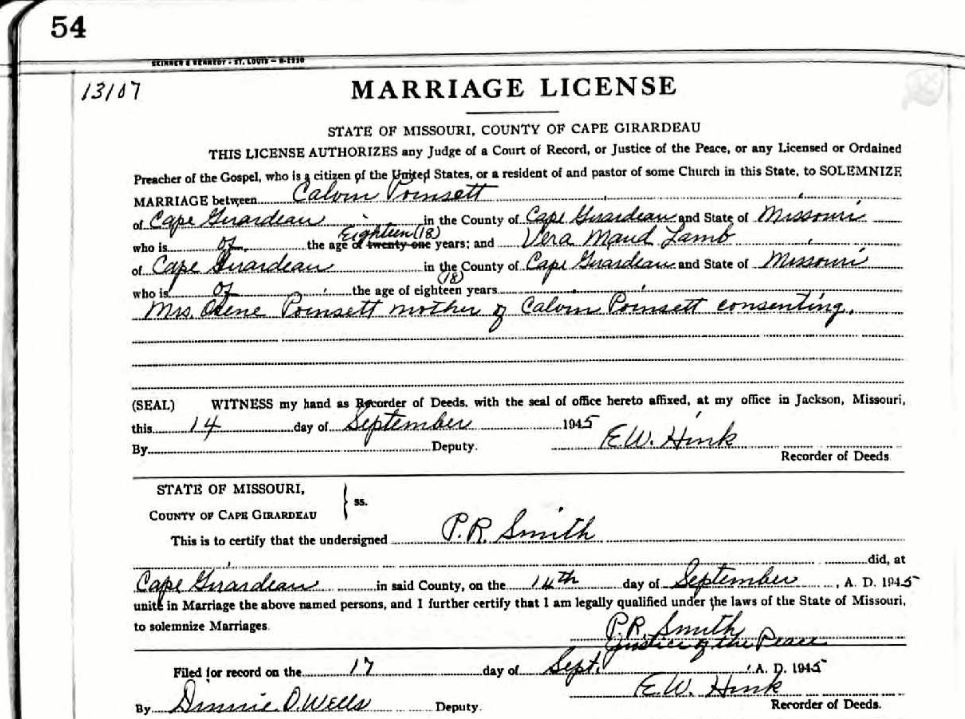 54
SKINNER & KENNEDY - ST. LOUIS -
13107
MARRIAGE LICENSE
STATE OF MISSOURI, COUNTY OF CAPE GIRARDEAU
THIS LICENSE AUTHORIZES any Judge of a Court of Record, or Justice of the Peace, or any Licensed or Ordained
Preacher of the Gospel, who is a citizen of the United States, or a resident of and pastor of some Church in this State, to SOLEMNIZE
MARRIAGE between Calvin Poinsett
of Cape Girardeau in the County of Cape Girardeau and State of Missouri
Eighteen (18)
who is of the age of twenty-one years; and Vera Maud Lamb
of Cape Girardeau in the County of Cape Girardeau and State of Missouri
(18)
who is of the age of eighteen years
Mrs. Poinsett mother of Calvin Poinsett consenting.
(SEAL) WITNESS my hand as Recorder of Deeds, with the seal of office hereto affixed, at my office in Jackson, Missouri,
this 14 day of September 1945
By Deputy. E.W. Hink
Recorder of Deeds.
STATE OF MISSOURI,
COUNTY OF CAPE GIRARDEAU } ss.
This is to certify that the undersigned P.R. Smith
did, at
Cape Girardeau in said County, on the 14th day of September, A. D. 1945
unite in Marriage the above named persons, and I further certify that I am legally qualified under the laws of the State of Missouri,
to solemnize Marriages. P.R. Smith
Justice of the Peace
Filed for record on the 17 day of Sept. A. D. 1945
E.W. Hink
By O. Wells Deputy. Recorder of Deeds.